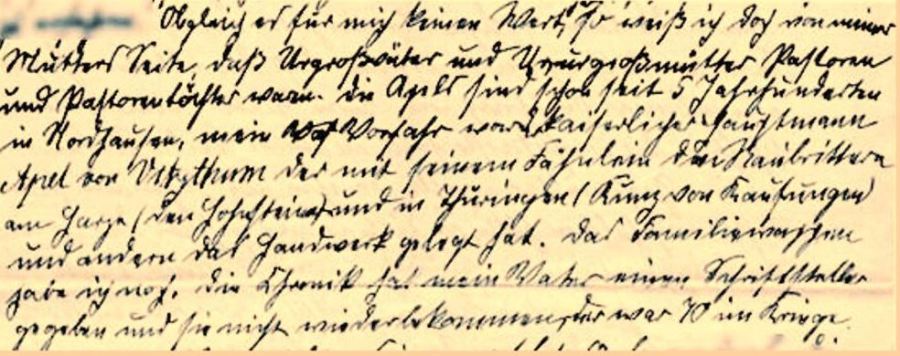 Obgleich es für mich keinen Wert, so weiß ich doch von meiner
Mutters Seite, daß Urgroßväter und Ururgroßmütter Pastoren
und Pastorentöchter warn. Die Apels sind schon seit 5 Jahrhunderten
in Nordhausen, mein Vorfahr war kaiserlicher Hauptmann
Apel von Vitzthum der mit seinem Fähnlein den Raubrittern
am Harze (den Hohnsteinern) und in Thüringen (Kunz von Kaufungen)
und andern das Handwerk gelegt hat. Das Familienwappen
habe ich noch. Die Chronik hat mein Vater einen Schriftsteller
gegeben und sie nicht wiederbekommen, der war 70 im Kriege